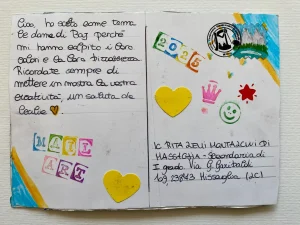 Ciao, ho scelto come tema
le dame di Baj perché
mi hanno colpito i loro
colori e la loro bizzarria
Ricordate sempre di
mettere in mostra la vostra
creatività, un saluto da
2025
MAIL
ART
IC RITA LEVI MONTALCINI DI
MASSAGLIA - Secondaria di
I grado Via G. Garibaldi
23873 Missaglia (LC)